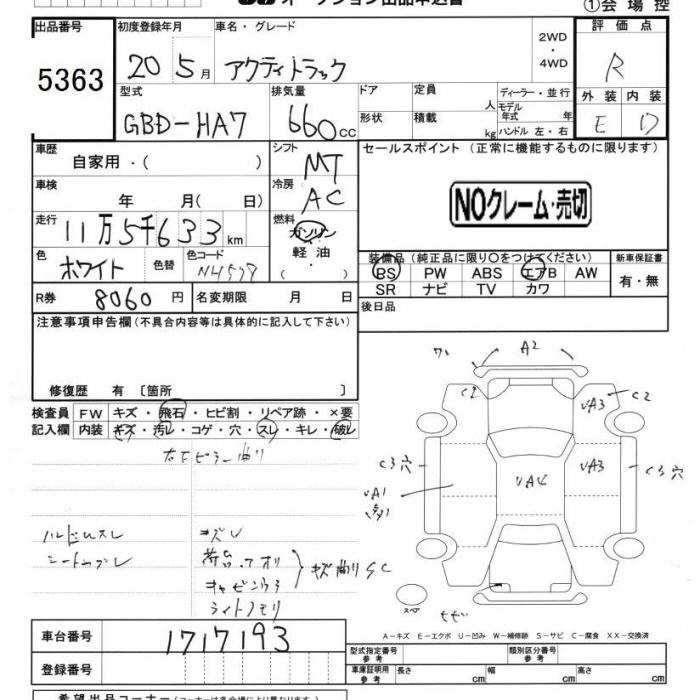 オークション出品申込書
①会場控
出品番号
5363
初度登録年月
20 5月
車名・グレード
アクティトラック
2WD
・
4WD
評価点
R
外装 内装
E D
型式
GBD-HA7
排気量
660cc
ドア
定員
人
ディーラー・並行
モデル年式 年
形状
積載
kg
ハンドル 左・右
車歴
自家用・( )
シフト
MT
セールスポイント(正常に機能するものに限ります)
NOクレーム・売切
車検
年 月(日)
冷房
AC
走行
11万5千633km
燃料
ガソリン
・
軽油
・
( )
色
ホワイト
色替
色コード
NH578
装備品(純正品に限り○をつけてください)
PS PW ABS エアB AW
SR ナビ TV カワ
新車保証書
有・無
R券 8060円
名変期限 月 日
後日品
注意事項申告欄(不具合内容等は具体的に記入して下さい)
修復歴 有〔箇所 〕
検査員 FW キズ・飛石・ヒビ割・リペア跡・×要
記入欄 内装 キズ・汚レ・コゲ・穴・スレ・キレ・破レ
右下ピラー曲り
ワレ A2
C2 C2
VA3
C3穴 VA3 C3穴
VA4
VA1
キズU
キズ曲りSC
スペア
A-キズ E-エクボ U-凹み W-補修跡 S-サビ C-腐食 XX-交換済
車台番号 1717193
登録番号
型式指定番号
参考
類別区分番号
参考
車庫証明用
参考
長さ cm
幅 cm
高さ cm
希望出品コーナー